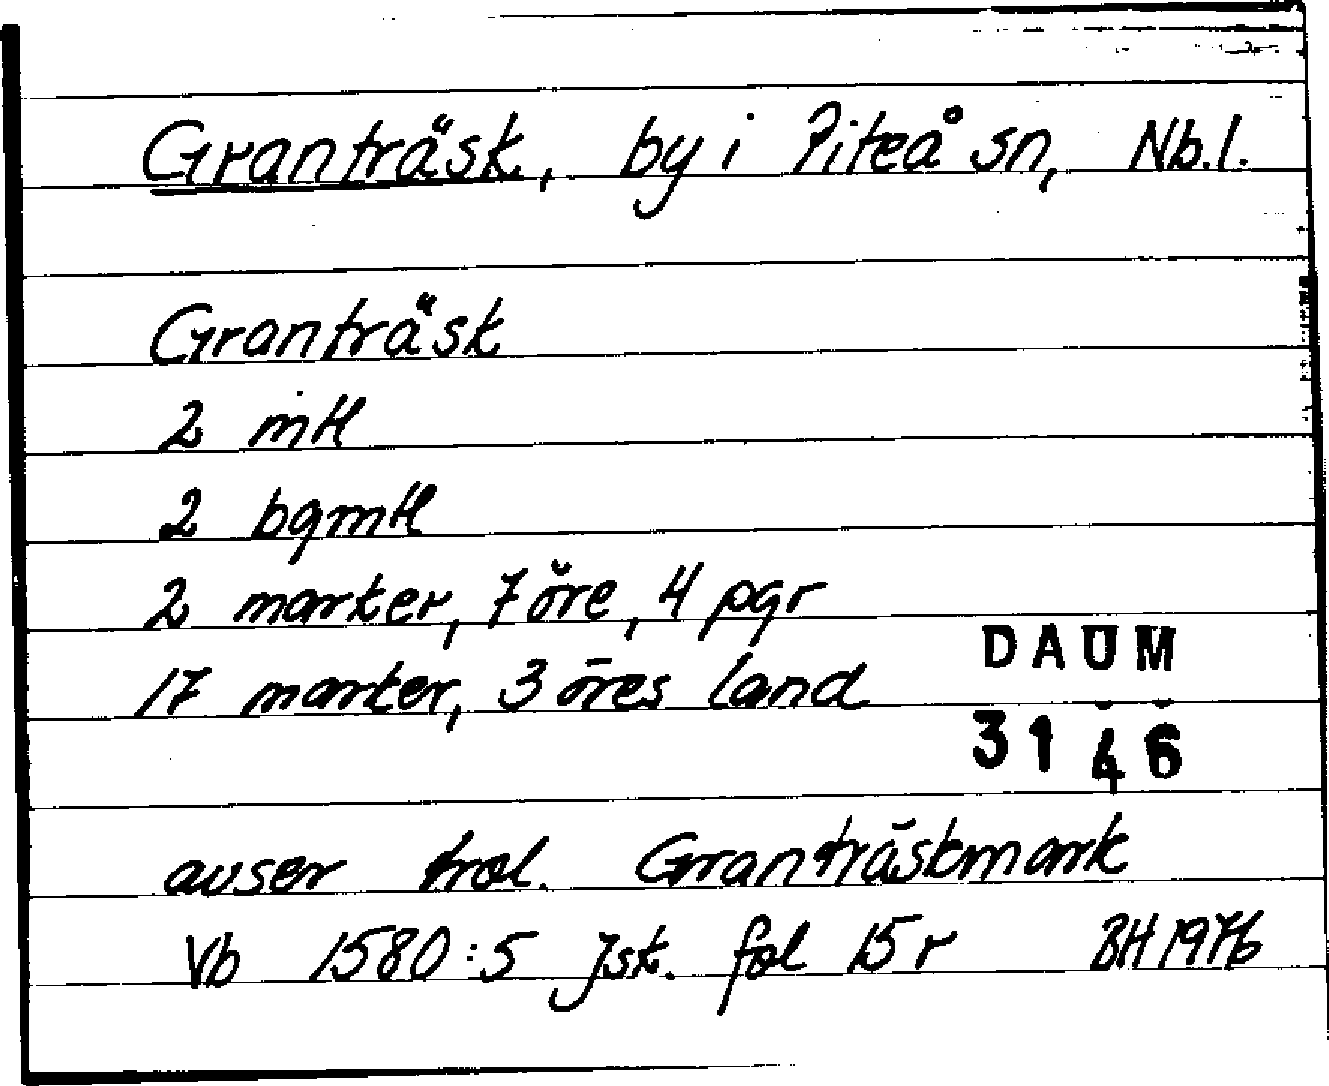 Granträsk, by i Piteå sn, Nb.l.
Granträsk
2 mtl
2 bgmtl
2 marker, 7 öre, 4 pgr
17 marker, 3 öres land
DAUM
3146
avser trol. Granträskmark
Vb 1580:5 Jsk. fol 15 r BH 1976